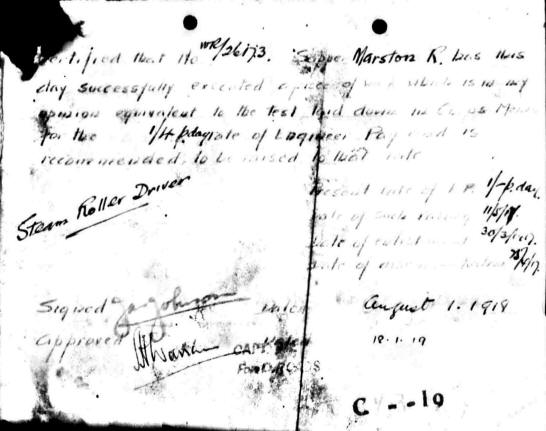 Certified that No WR/26173. Sapper Marston R. has this
day successfully executed a piece of work which is in my
opinion equivalent to the test laid down in Corps Memo
for the 1/4 p.day rate of Engineer Pay and is
recommended to be raised to that rate
Steam Roller Driver
Present rate of E.P. 1/- p.day.
Date of such rating
Date of enlistment 30/3/1917.
Date of
Signed Johnson Dated August 1. 1918
Approved CAPT. 18.1.19
For
C - -19